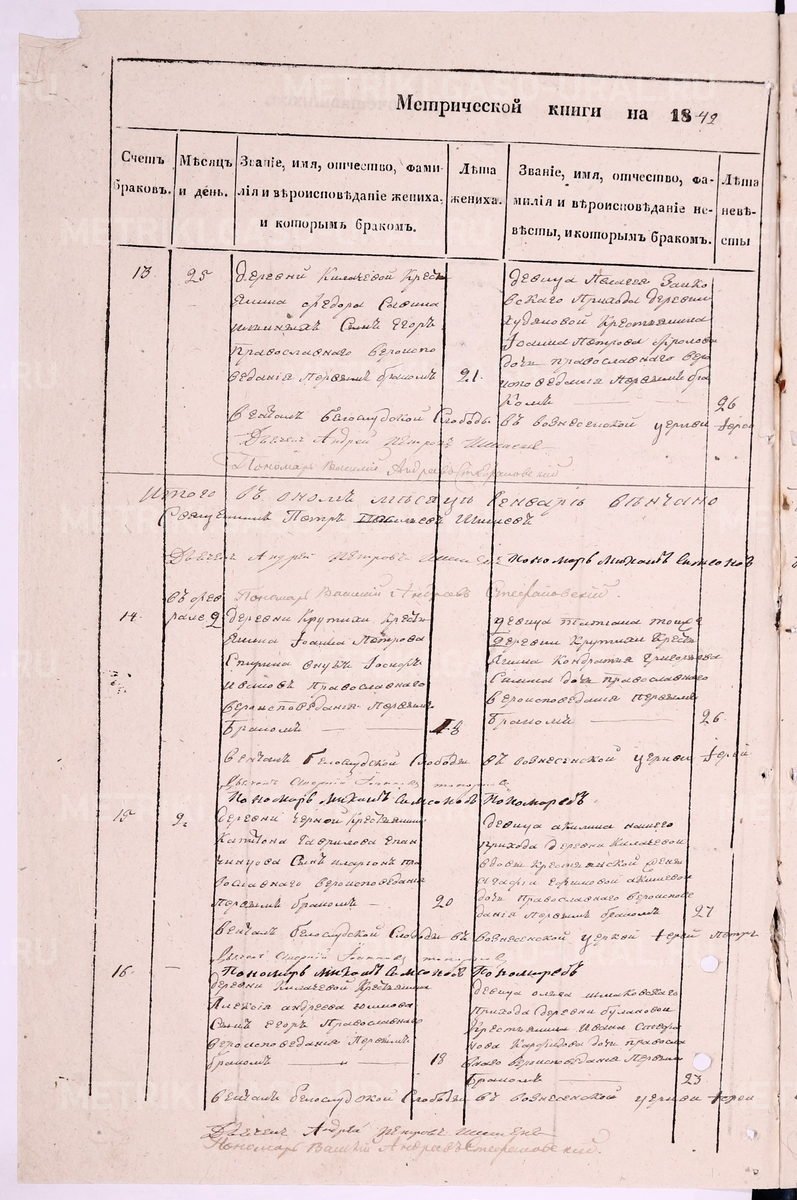 Метрической книги на 1842
Счетъ браковъ.
Мѣсяцъ и день.
Званіе, имя, отчество, фами-
лія и вѣроисповѣданіе жениха,
и которымъ бракомъ.
Лѣта жениха.
Званіе, имя, отчество, фа-
милія и вѣроисповѣданіе не-
вѣсты, и которымъ бракомъ.
Лѣта невѣ-
сты
13 25
деревни Килачевой Кресть
янина Федора Савина
сынъ Егоръ
православнаго вероиспо
веданія первымъ бракомъ 21.
девица Пелагея Зайко
вскаго Прихода деревни
Худяковой Крестьянина
Іоанна Петрова Фролова
дочь православнаго веро
исповеданія первымъ бра
комъ 26
венчалъ Белослудской Слободы въ вознесенской церкви Іерей
Дьячекъ Андрей Петровъ
Пономарь Василій Андреевъ Стефановский
Итого въ ономъ месяцѣ Генварѣ венчано
Священникъ Петръ
Дьячекъ Андрей Петровъ Пономарь Михаилъ Симсоновъ
Пономарь Василий Андреевъ Стефановский.
14. въ фев
рале 2
деревни Крутихи Кресть
янина Іоанна Петрова
Спирина внукъ
Ивановъ православнаго
вероисповеданія первымъ
бракомъ 18
девица Татіана тойже
деревни Крутихи Кресть
янина Кондратія Григорьева
дочь православнаго
вероисповеданія первымъ
бракомъ 26.
венчалъ Белослудской Слободы въ вознесенской церкви Іерей
Пономарь Михаилъ Симсоновъ Пономаревъ.
15 2.
деревни Черной Крестьянина
Гаврилова Епан
чинцова сынъ Иларіонъ пра
вославнаго вероисповеданія
первымъ бракомъ 20
девица Акилина нашего
прихода деревни Килачевой
вдовы Крестьянской жены
Ефимовой
дочь православнаго вероиспове
данія первымъ бракомъ 27
венчалъ Белослудской Слободы въ вознесенской церкви Іерей Петръ
Пономарь Михаилъ Симсоновъ Пономаревъ
16. —
деревни Килачевой Крестьянина
Алексія Андреева
сынъ Егоръ Православнаго
вероисповеданія первымъ
бракомъ 18
девица Олена
прихода деревни Булановой
Крестьянина Ивана
дочь правосла
внаго вероисповеданія первымъ
бракомъ 23
венчалъ Белослудской Слободы въ вознесенской церкви Іерей
Дьячекъ Андрей Петровъ
Пономарь Василій Андреевъ Стефановский.